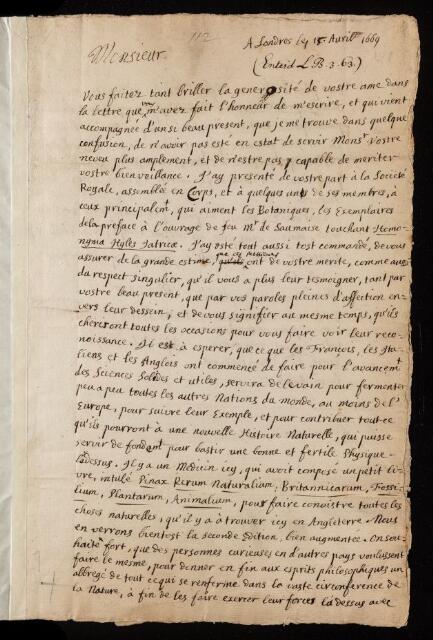 112
A Londres le 15. Avril 1669
Monsieur.
(Enterd L.B. 3. 63.)
Vous faitez tant briller la generosité de vostre ame dans
la lettre que m'avez fait l'honneur de m'escrire, et qui vient
accompagnée d'un si beau present, que je me trouve dans quelque
confusion, de n'avoir pas esté en estat de servir Monsr. Vostre
neveu plus amplement, et de n'estre pas capable de meriter
vostre bienveillance. J'ay presenté de vostre part à la Societé
Royale, assemblée en Corps, et à quelques uns de ses membres, à
ceux principalemt, qui aiment les Botaniques, les Exemplaires
de la preface à l'ouvrage de feu Mr. de Saumaise touchant Homo-
nyma Hyles Iatricæ. J'ay esté tout aussi tost commandé, de vous
assurer de la grande estime, que ces Messieurs ont de vostre merite, comme aussi
du respect singulier, qu'il vous a plus leur tesmoigner, tant par
vostre beau present, que par vos paroles pleines d'affection en-
vers leur dessein; et de vous signifier au mesme temps, qu'ils
cheriront toutes les occasions pour vous faire voir leur reco-
noissance. Il est à esperer, que ce que les François, les Ita-
liens et les Anglois ont commencé de faire pour l'avancemt
des Sciences Solides et utiles, servira de levain pour fermenter
peu a peu toutes les autres Nations du monde, au moins de l'
Europe, pour suivre leur Exemple, et pour contribuer tout ce
qu'ils pourront à une nouvelle Histoire Naturelle, qui puisse
servir de fondemt pour bastir une bonne et fertile Physique
la dessus. Il y a un Medicin icy, qui avoit composé un petit li-
vre, intulé Pinax Rerum Naturalium, Britannicarum, Fossi-
lium, Plantarum, Animalium, pour faire conoistre toutes les
choses naturelles, qu'il y a à trouver icy en Angleterre. Nous
en verrons bientost la seconde Edition, bien augmentée. On sou-
haite fort, que des personnes curieuses en d'autres pays voulussent
faire le mesme, pour donner en fin aux esprits philosophiques un
abbregé de tout ce qui se renferme dans la vaste circonference de
la Nature, à fin de les faire exercer leur forces la dessus avec